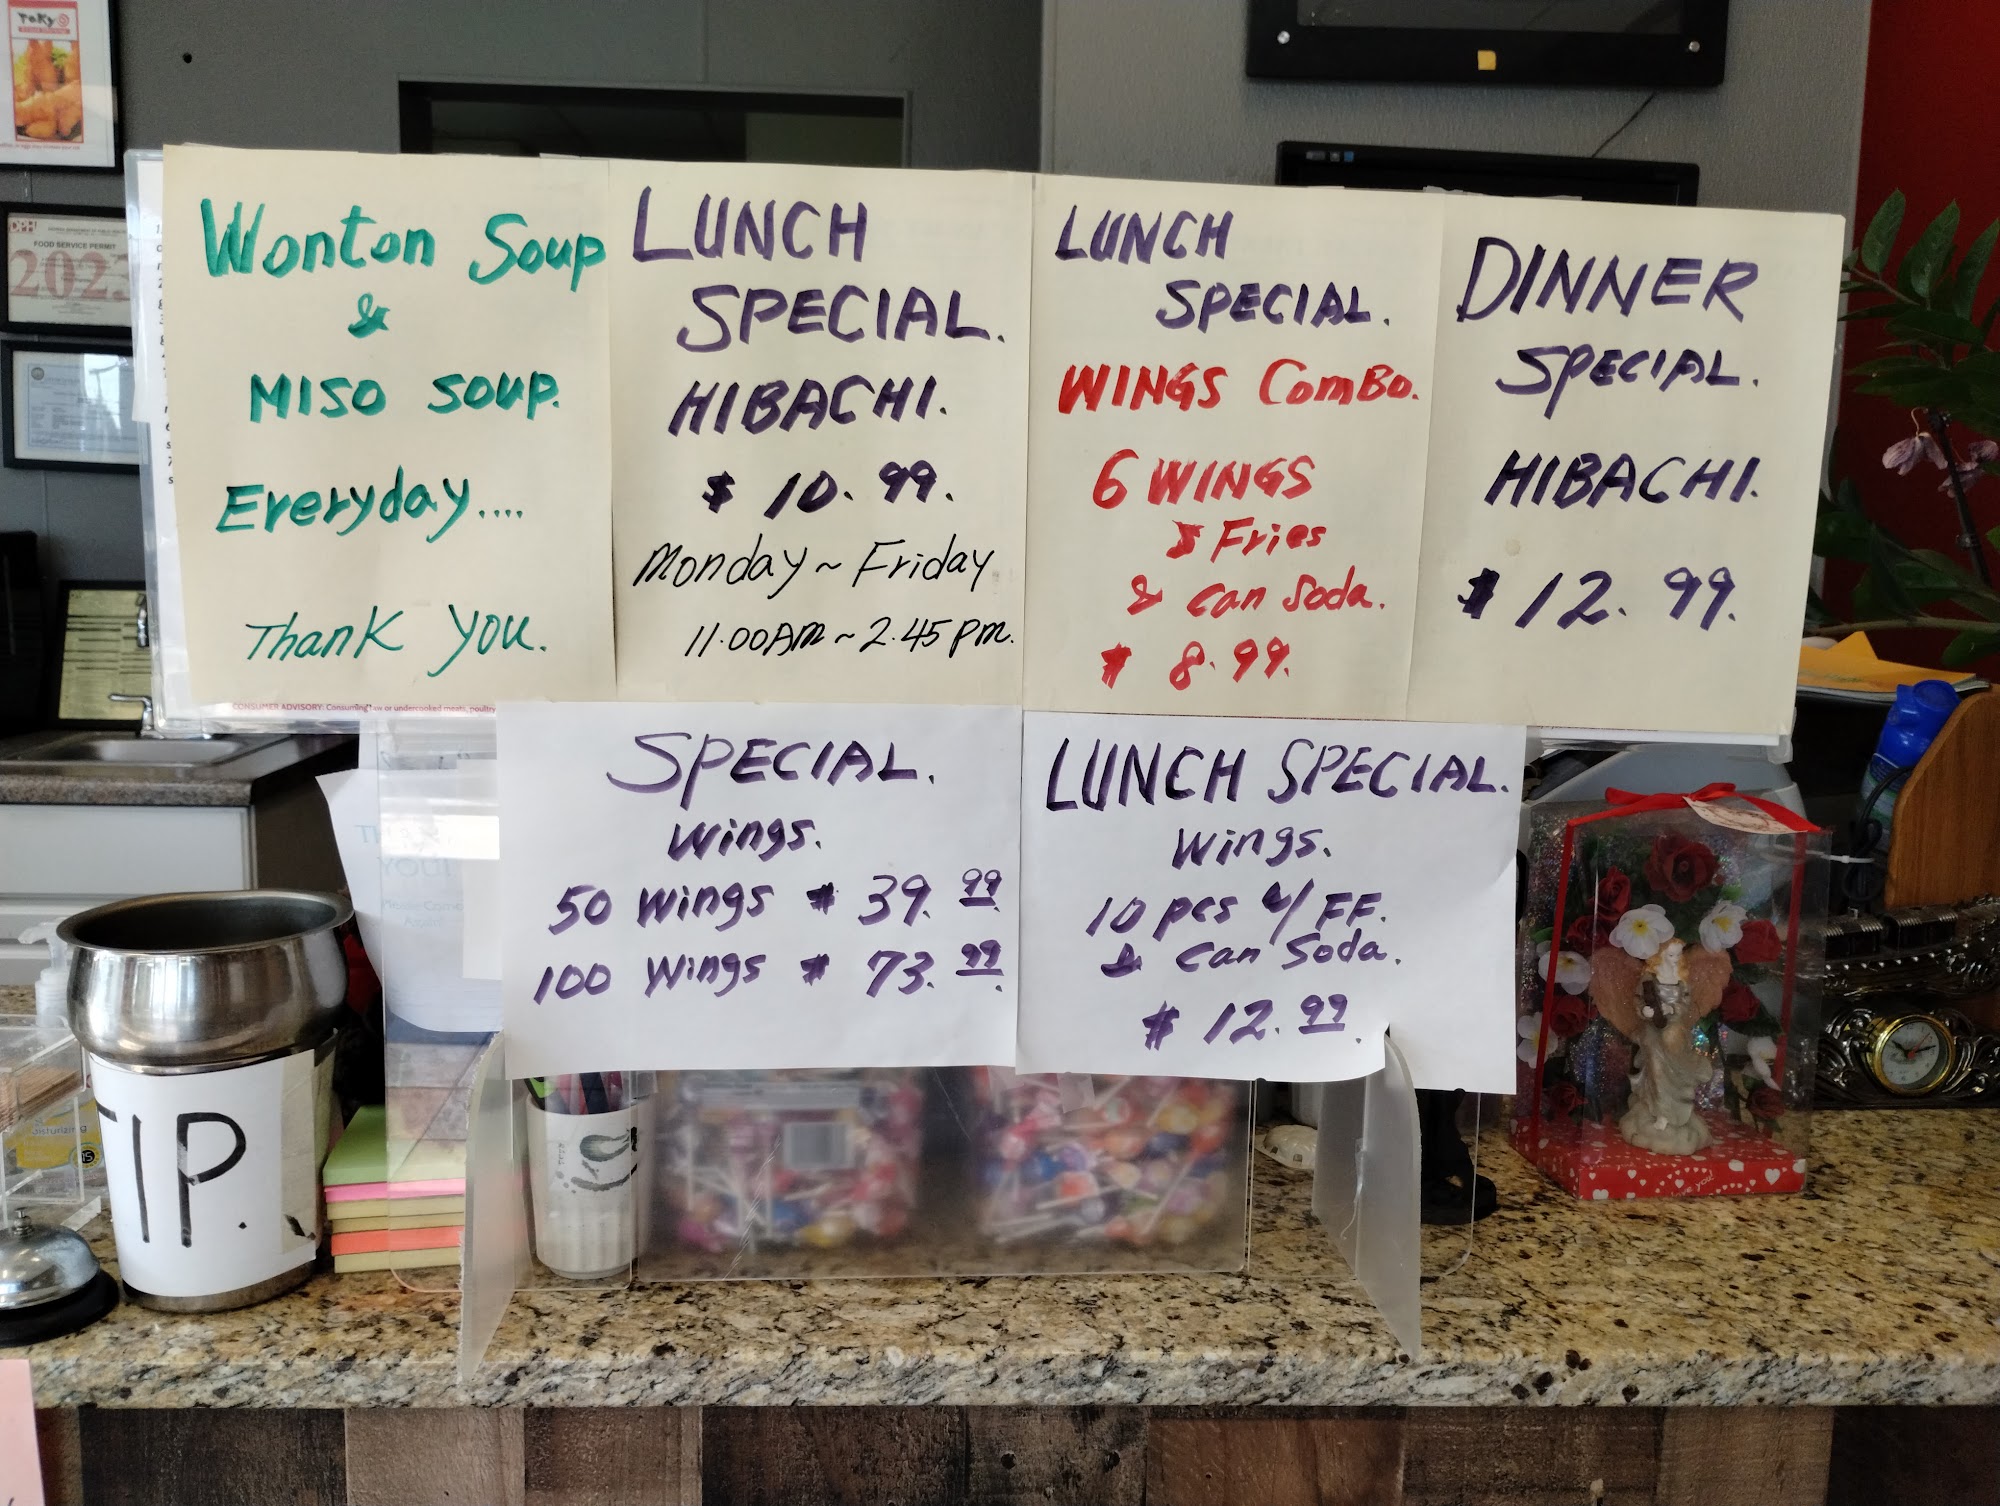 Wonton Soup
&
MISO SOUP.
Everyday....
Thank You.
LUNCH
SPECIAL.
HIBACHI.
$ 10.99.
Monday ~ Friday
11.00AM ~ 2.45pm.
LUNCH
SPECIAL.
WINGS ComBo.
6 WINGS
& Fries
& can Soda.
$ 8.99.
DINNER
SPECIAL.
HIBACHI.
$ 12.99.
CONSUMER ADVISORY: Consuming raw or undercooked meats, poultry
SPECIAL.
Wings.
50 Wings $ 39.99
100 Wings $ 73.99
LUNCH SPECIAL.
Wings.
10 pcs w/ FF.
& can Soda.
$ 12.99.
TIP.
FOOD SERVICE PERMIT
2023
TOKYO